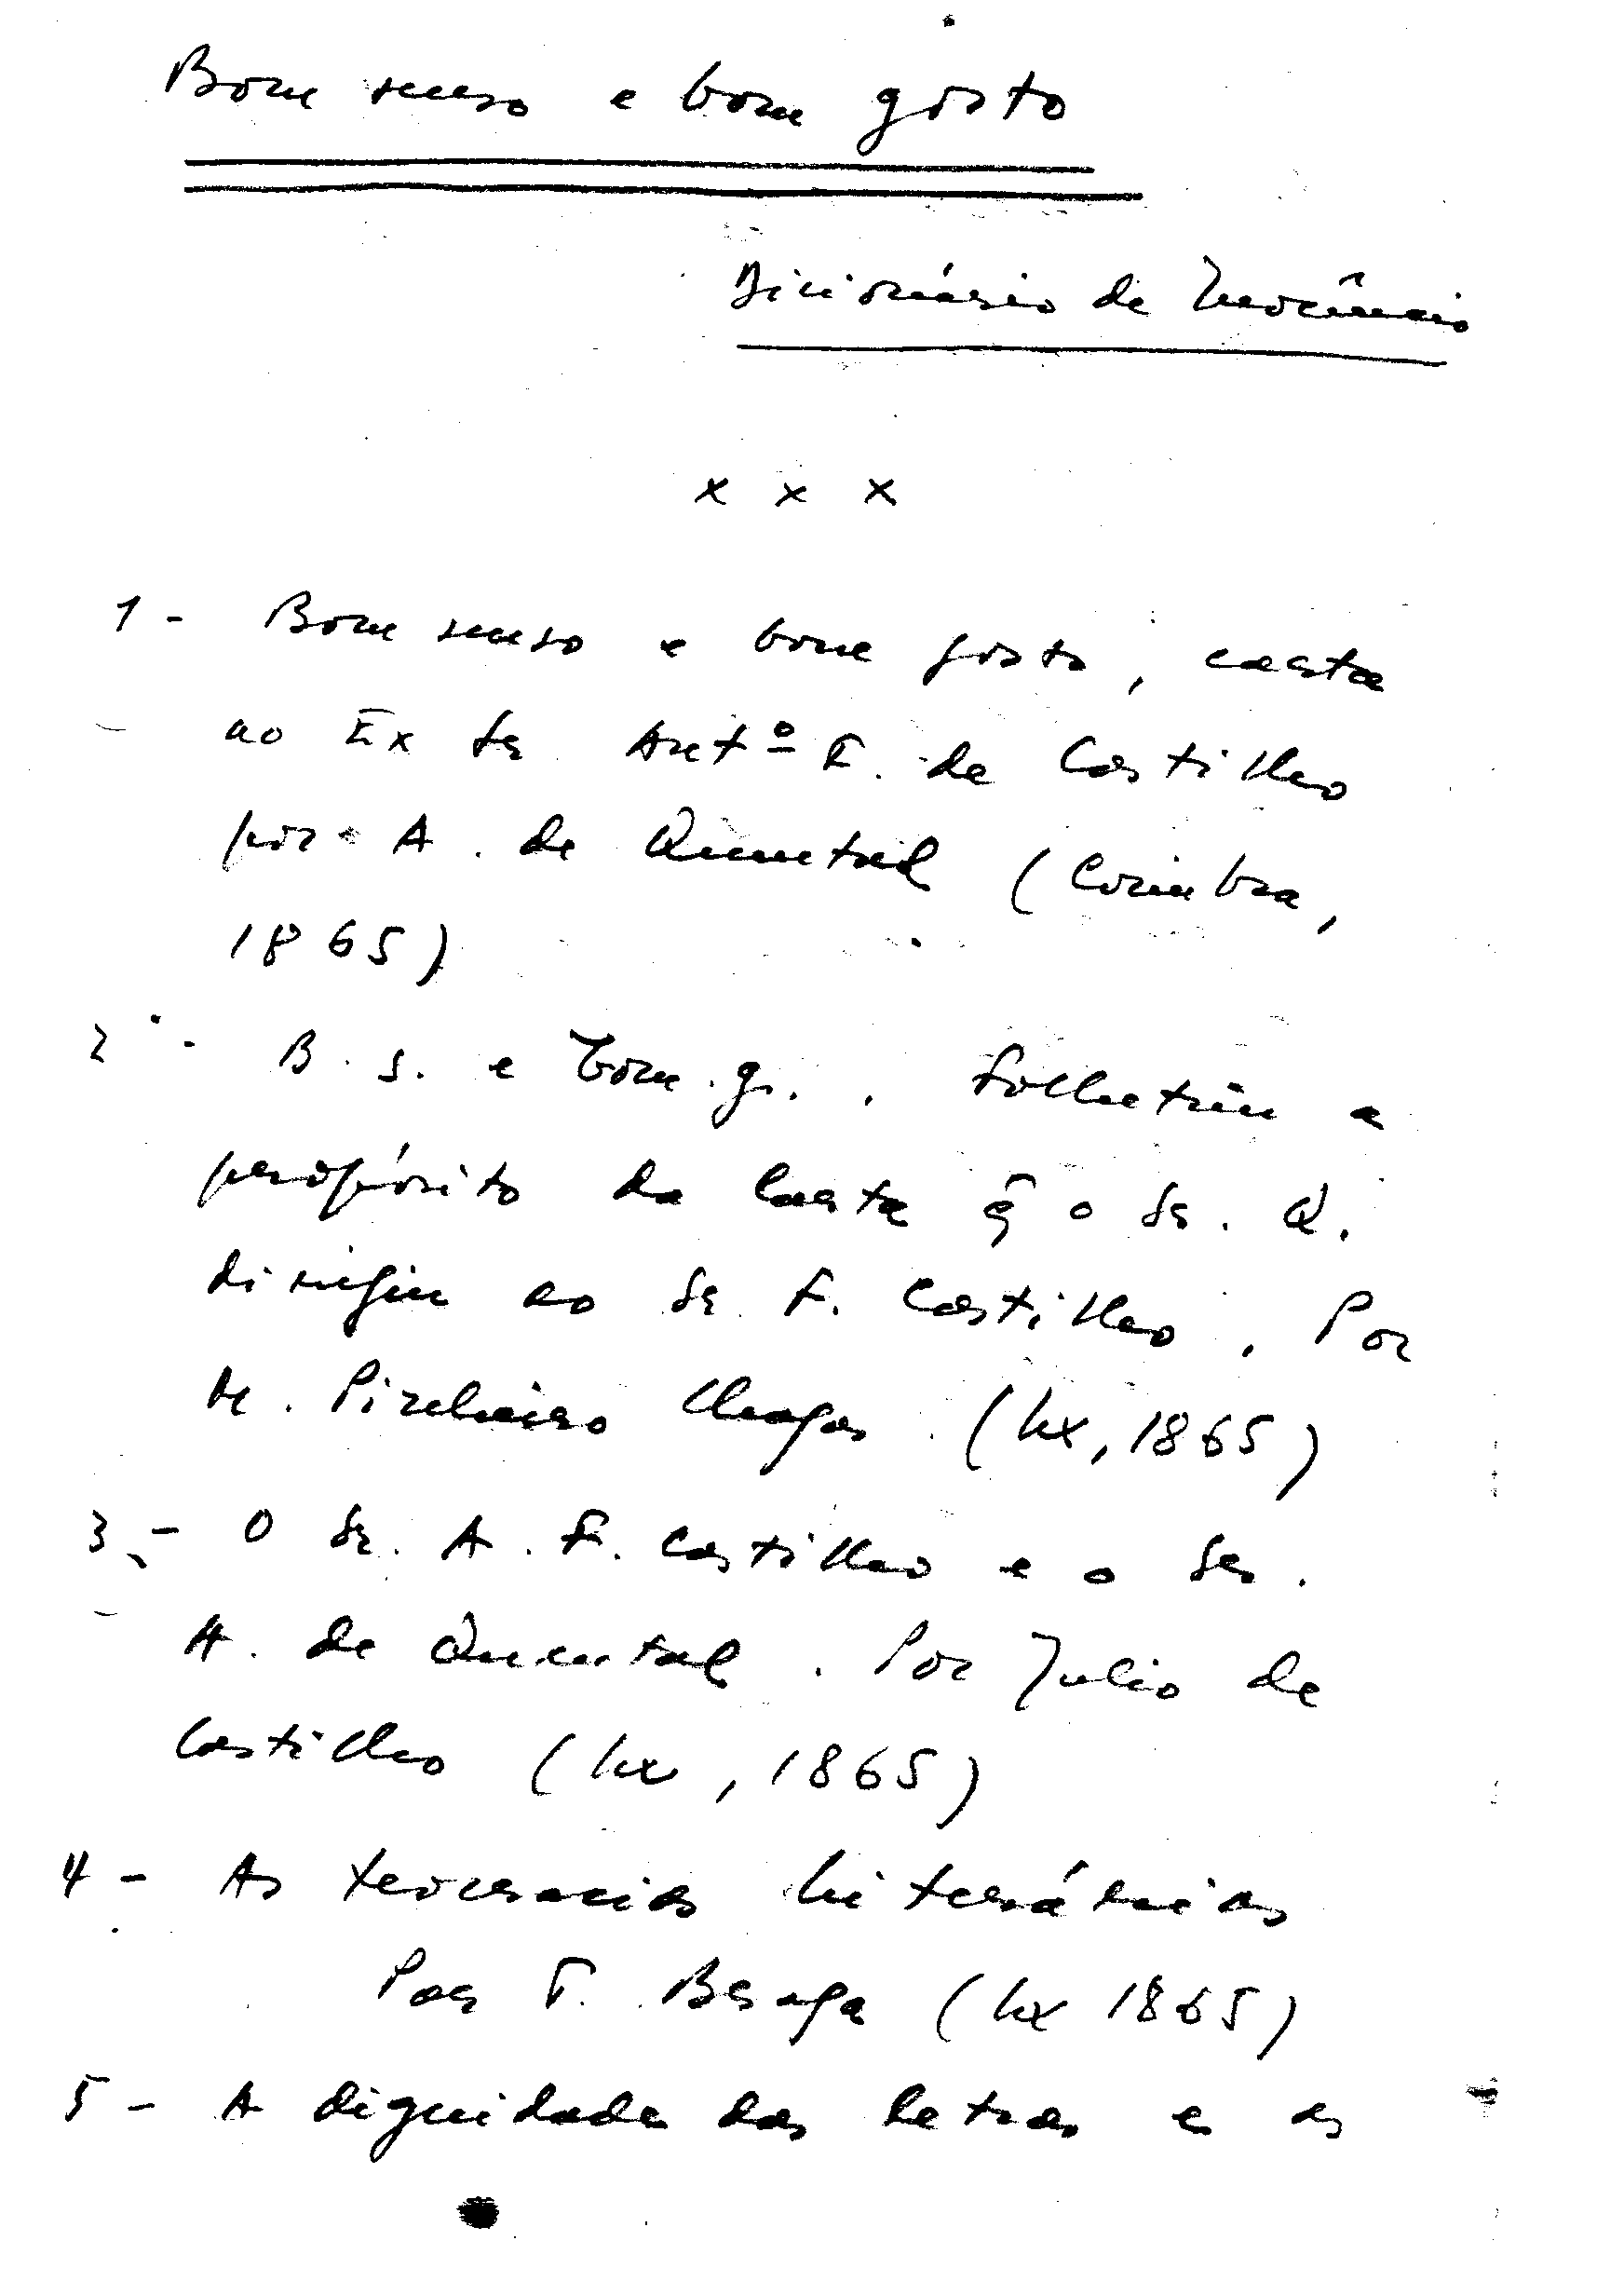 Bom senso e bom gosto
Dicionário de Inocêncio
x x x
1 - Bom senso e bom gosto, carta
ao Ex Sr Antº F. de Castilho
por A. de Quental (Coimbra,
1865)
2 - B. S. e bom g.. Folhetim a
propósito da Carta q̃ o Sr. Q.
dirigiu ao Sr F. Castilho. Por
M. Pinheiro Chagas. (Lx, 1865)
3 - O Sr. A. F. Castilho e o Sr.
A. de Quental. Por Julio de
Castilho (Lx, 1865)
4 - As teocracias literárias
Por T. Braga (Lx 1865)
5 - A dignidade das letras e as